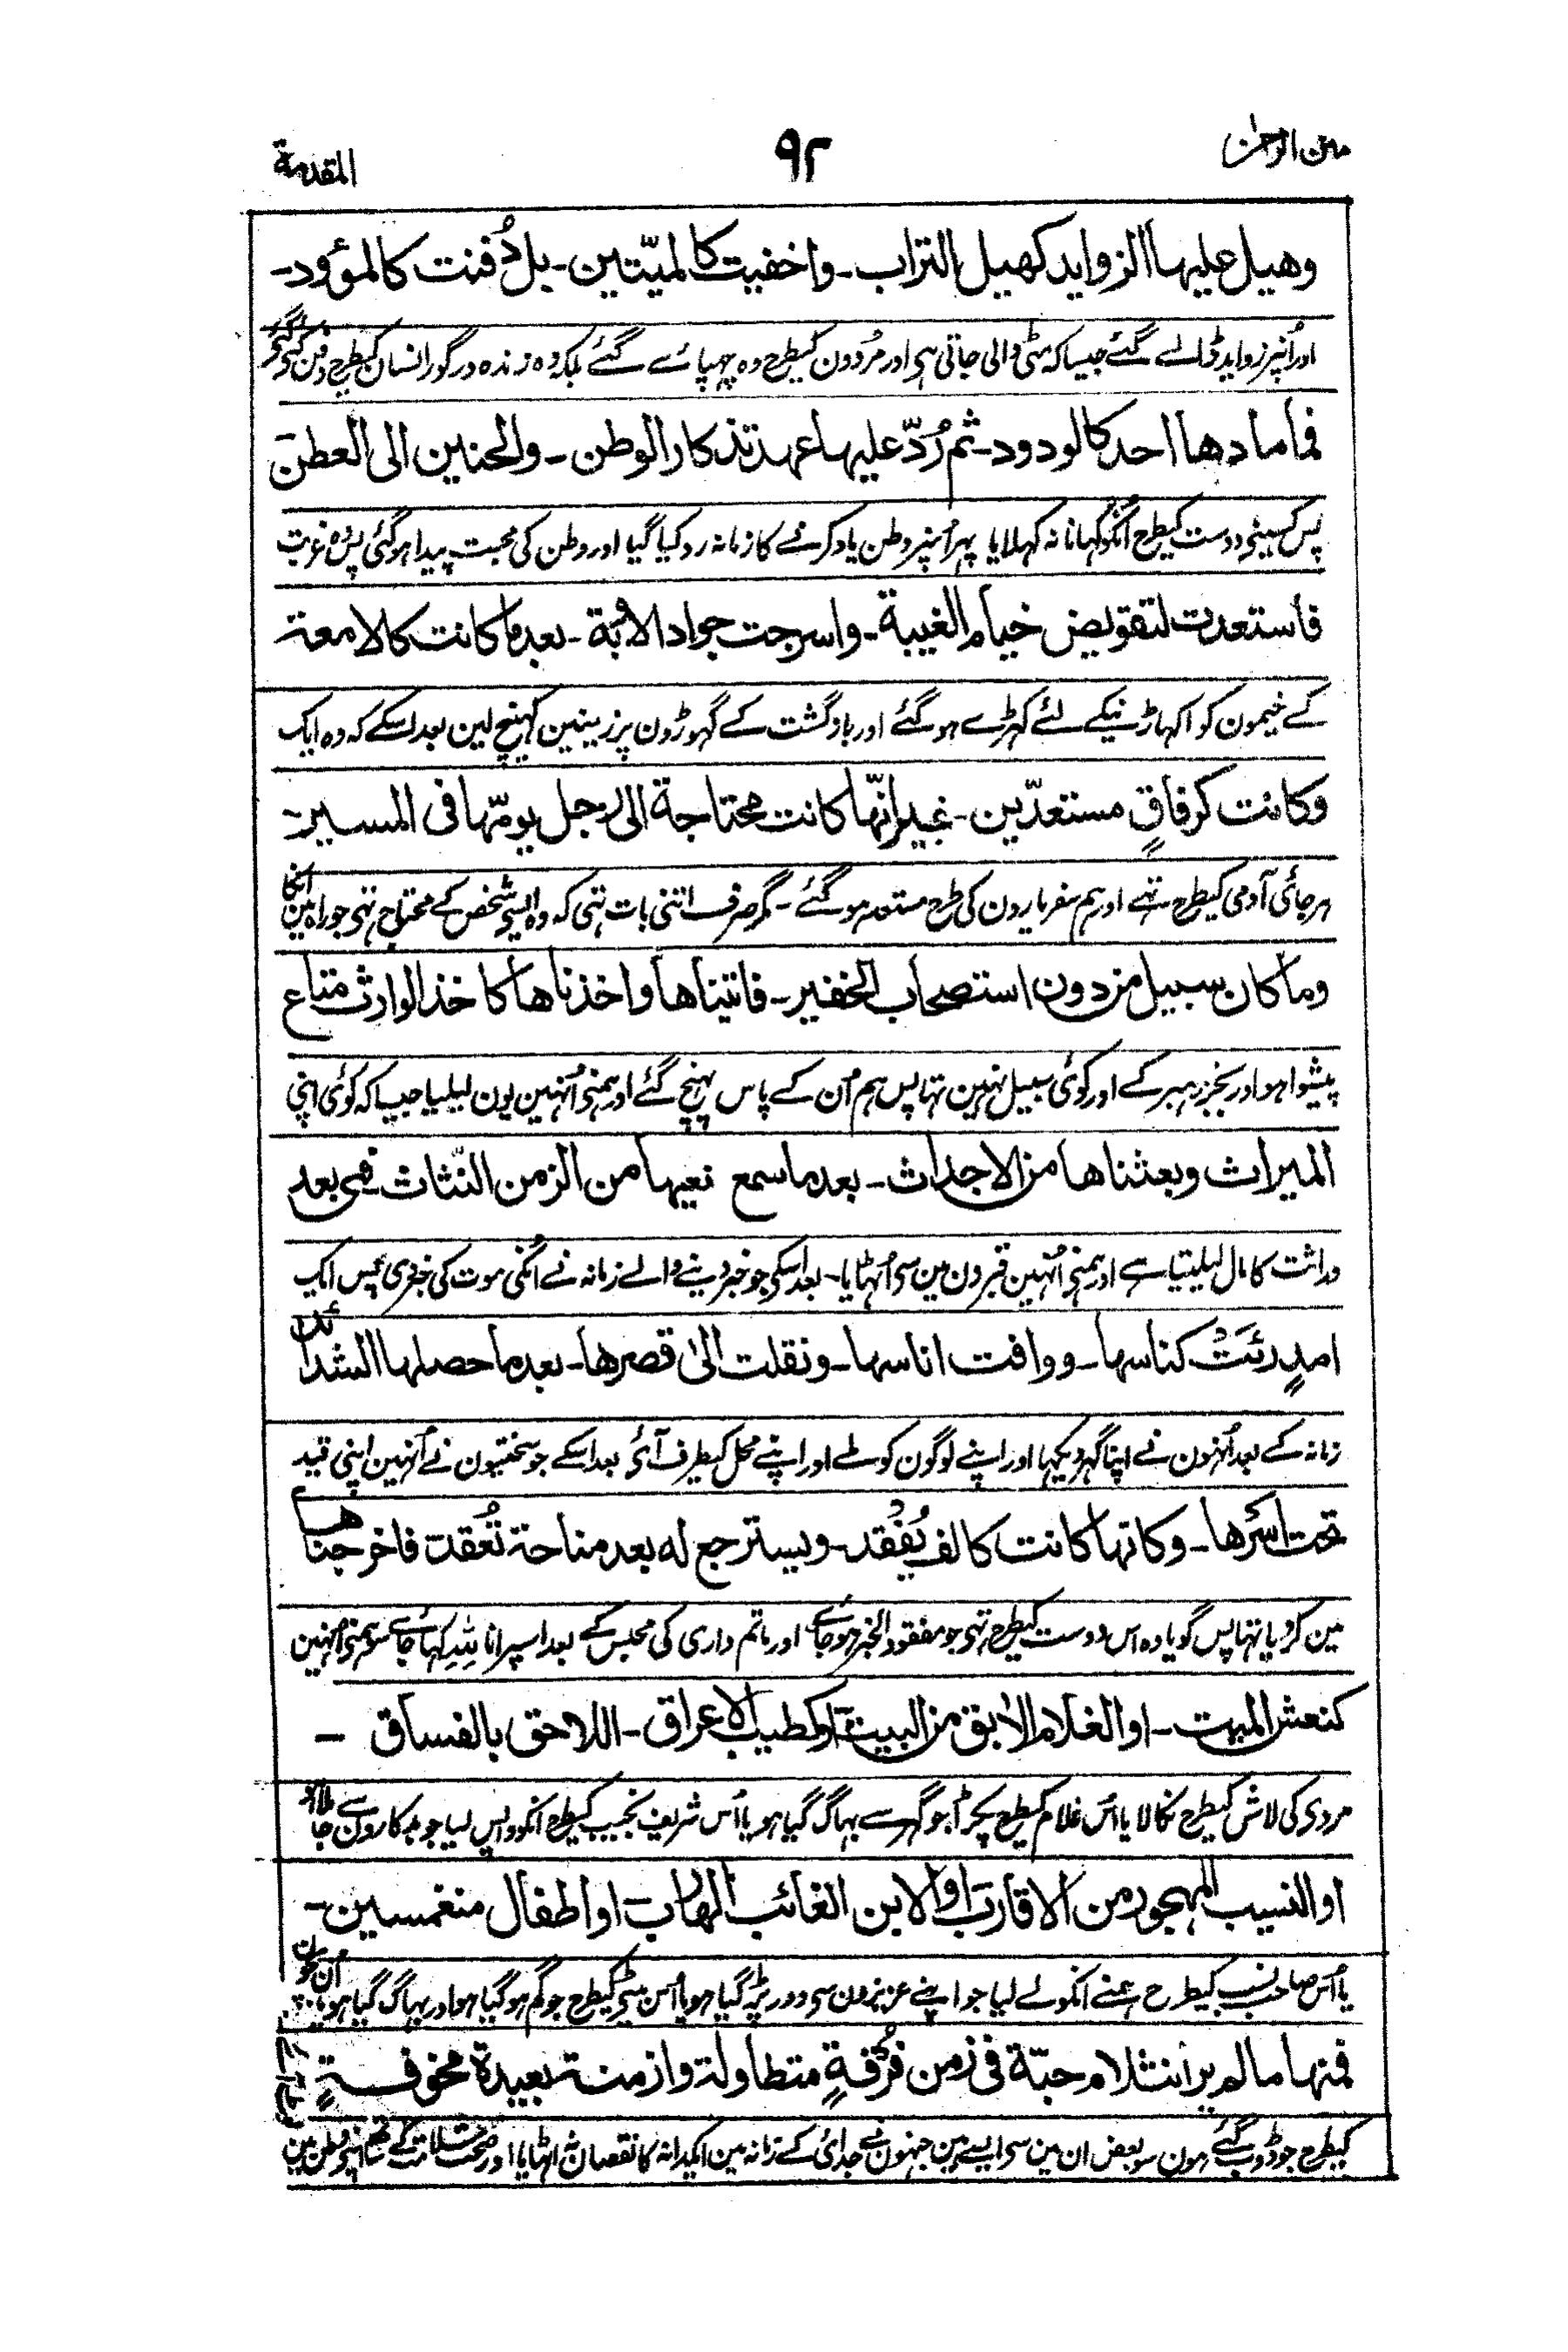 منن الرحمٰن ۹۲ المقدمة
وهيل عليها الزوايد كهيل التراب۔ واخفيت كالميّتين۔ بل دُفنت كالموؤد۔
اور اُنپر زواید ڈالے گئے جیسا کہ مٹی ڈالی جاتی ہی اور مُردون کیطرح وہ چہپائے گئے بلکہ وہ زندہ درگور انسان کیطرح دفن کئے گئے
فما مادها احد كالودود۔ ثم رُدّ عليها عهد تذكار الوطن۔ والحنين الى العطن
پس کسینے دوست کیطرح اُنکو کہانا نہ کہلایا پہر اُنپر وطن یاد کرنے کا زمانہ رد کیا گیا اور وطن کی محبت پیدا ہوگئی پس وہ غربت
فاستعدت لتقويض خيام الغيبة۔ واسرجت جواد الاوبة۔ بعد ما كانت كالامعة
کے خیمون کو اکہاڑنیکے لئے کہڑے ہوگئے اور بازگشت کے گہوڑون پر زینین کہینچ لین بعد اسکے کہ وہ ایک
وكانت كرفاقٍ مستعدّين۔ غير انّها كانت محتاجة الى رجل يومّها فى المسير۔
ہرجائی آدمی کیطرح تہے اور ہم سفر یارون کی طرح مستعد ہوگئے۔ مگر صرف اتنی بات تہی کہ وہ ایسے شخص کے محتاج تہی جو راہ مین اُنکا
وما كان سبيل من دون استصحاب الخفير۔ فاتيناها واخذناها كاخذ الوارث متاع
پیشوا ہو اور بجز رہبر کے اور کوئی سبیل نہین تہا پس ہم اُن کے پاس پہنچ گئے اور ہمنے اُنہین یون لیلیا جیسا کہ کوئی اپنی
الميراث وبعثناها من الاجداث۔ بعد ما سمع نعيها من الزمن النثاث۔ فهى بعد
وراثت کا مال لیلیتا ہے اور ہمنے اُنہین قبرون مین سی اُٹہایا۔ بعد اسکی جو خبر دینے والے زمانہ نے اُنکی موت کی خبر دی پس ایک
امدٍ رئت كناسها۔ ووافت اناسها۔ ونقلت الىٰ قصرها۔ بعد ما حصلها الشدائد
زمانہ کے بعد اُنہون نے اپنا گہر دیکہا اور اپنے لوگون کو ملے اور اپنے محل کیطرف آئی بعد اسکے جو سختیون نے اُنہین اپنی قید
تحت اسرها۔ وكانها كانت كالف يُفقد۔ ويسترجع له بعد مناحة تُعقد فاخرجناها
مین کر دیا تہا پس گویا وہ اس دوست کیطرح تہی جو مفقود الخبر ہوجائے اور ماتم داری کی مجلس کے بعد اسپر انا للہ کہا جائے سو ہمنے اُنہین
كنعش الميت۔ او الغلام الآبق من البيت او كطيب الاعراق۔ اللاحق بالفساق۔
مردی کی لاش کیطرح نکالا یا اُس غلام کیطرح پکڑا جو گہر سے بہاگ گیا ہو یا اُس شریف نجیب کیطرح انکو واپس لیا جو بدکارون سے جا ملا ہو
او النسيب المهجور من الاقارب او الابن الغائب الهارب او اطفال منغمسين۔
یا اُس صاحب نسب کیطرح ہمنے انکو لے لیا جو اپنے عزیزون سی دور پڑ گیا ہو یا اُس بیٹے کیطرح جو گم ہوگیا ہو اور بہاگ گیا ہو یا اُن بچون
فمنها ما لم ير انثلام حبّة فى زمن فُرقةٍ متطاولة وازمنة بعيدة مخوفةٍ
کیطرح جو ڈوب گئے ہون سو بعض ان مین سی ایسے ہین جنہون نے جدائی کے زمانہ مین ایک دانہ کا نقصان نہ اُٹہایا اور صحت سلامت کے ساتھ اپنے وطن مین